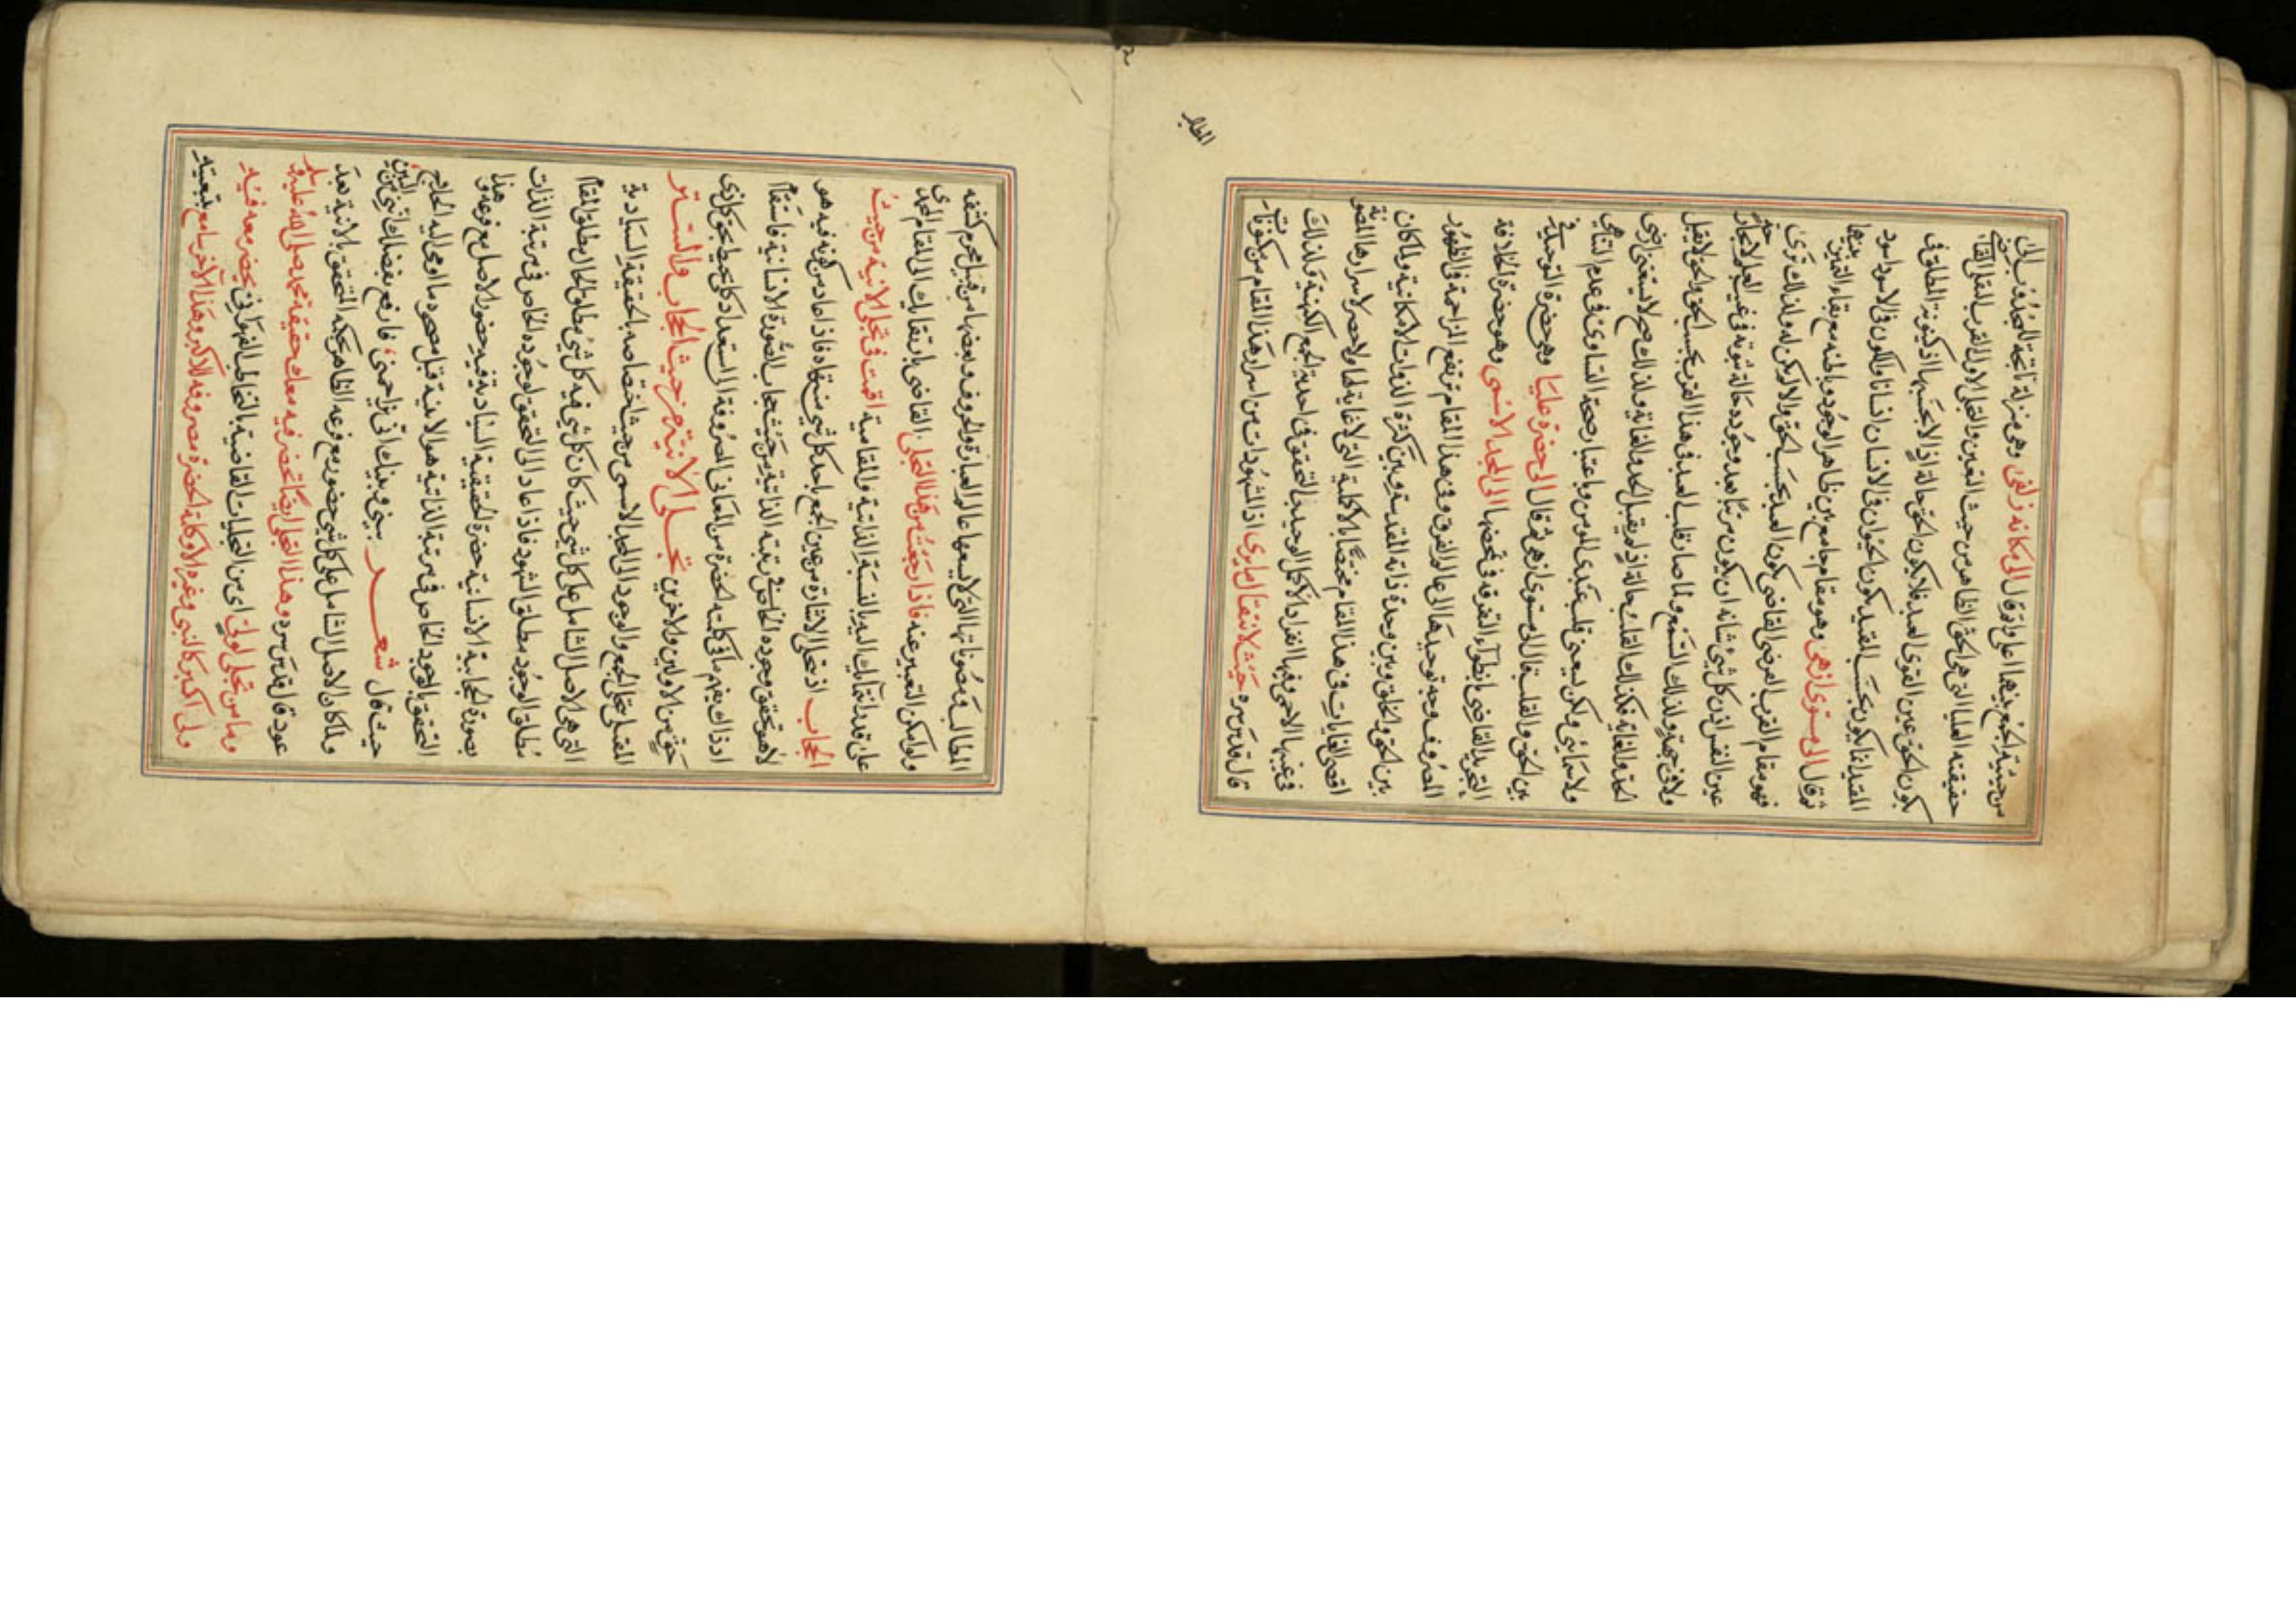 من حيثية الجمع بينهما اعلى واتم قال الى مكانه زلفى وهى منزلة تاتجة للعدوف
حقيقته العليا التى هى الحق الظاهر من حيث التعين والتجلى الاول القرب
يكون الحق عين القوى العبد فلا يكون الحق حالة اذ الا بحسبها اذ كينونة المطلق فى
المقيد انما يكون بحسب المقيد كون الحيوان فى الانسان انسانا واللون فى الاسود اسود
ثم قال الى مستوى ازهى وهو مقام جامع بين ظاهر الوجود وباطنه مع بقاء التمييز بينهما
فهو مقام القرب الفرضى القاضى بكون العبد بحسب الحق والا لم يكن له ولذلك ترى
عين النفس اذن كل شئ شانه ان يكون مرئيا بعد وجوده حالة ثبوته فى غيب العلم
ولا فى جهة ولذلك التسع ولما صار قلب العبد فى هذا القرب بحسب الحق والحق لا يقبل
الحد والغاية فكذلك القلب حالة اذ لم يقبل الحد والغاية ولذلك صح لا يسعنى ارضى
ولا سمائى ولكن يسعنى قلب عبدى المومن وباعتبار صحة التساوى فى عدم التناهى
بين الحق والقلب قال الى مستوى ازهى ثم قال الى حضرة عليا وهى حضرة التوحيد
التجريد القاضى بانطواء التفرقة فى محضها الى المجد الاسمى وهو حضرة الخلافة
المعروف وجه توحيدها الى عالم الفرق وفى هذا المقام ترتفع المزاحمة فى الظهور
بين الحق والخلق وبين وحدة ذاته المقدسة وبين كثرة الذوات الامكانية ولما كان
اقصى الغايات فى هذا المقام مختصا بالاكملية التى لا غاية لها ولا حصر لاسرارها المصونة
فى غيبها الاحمى وفيها انفراد الاكمل الوحيد بالتحقق فى احدية الجمع الكنهية ولذلك
قال قدس سره حيث لا ينتقال لما يرى اذ المشهودات من اسرار هذا المقام من مكنونات
المطالب
المطالب ومصوناتها التى لا يسعها عالم العبارة والحروف وبعضها من قبيل محرم كشفه
ولو امكن التعبير عنه فاذا رجعت من هذا التجلى القاضى بارتقائك الى المقام المحمدى
على قدم لقائك اليه بالنسبة الذاتية والمقامية اقمت فى تجلى الانية من حيث
الحجاب اذ تجلى الاشارة من عين الجمع باحد كل شئ منتهاه فاذا عاد من كونه فيه هو
لا هو تحقق وجوده الخاص فى رتبته الذاتية من حيث حجاب الصورة الانسانية
اذ ذاك يفهم ما فى كلية الحضرة من المعانى المعروفة الى استعداد كل محيط بحق كل ذى
حق من الاولين والاخرين تجلى الانية من حيث الحجاب والستر
المقسط بتجلى الجمع والوجود الى المجد الاسمى من حيث اختصاصه بالحقيقة السيادية
التى هى الاصل الشامل على كل شئ حيث كان كل شئ فيه كل شئ مطلق الحال مطلق المقام
مطلق الوجود مطلق الشهود فاذا عاد الى التحقق لوجوده الخاص فى مرتبة الذات
بصورة الحجابية الانسانية حضرة الحقيقية السيادية فيه حضور الاصل مع فرعه وهذا
التحقق بالوجود الخاص فى مرتبة الذاتية هو الانية قبل صحوه ما اومى اليه الحلاج
حيث قال شعر بينى وبينك انى يزاحمنى فارفع بفضلك انى من البين
ولما كان الاصل الشامل على كل شئ حضور مع فرعه الظاهر بحكمه التحقق بالانية بعد
عود قال قدس سره وهذا التجلى ايضا تحضر فيه معك حقيقة محمد صلى الله عليه وسلم
وما من تجلى لولى اى من التجليات القاضية بالتخاطب الفهوانى يحضر معه فيه
ولى اكبر كالنبى وغيره الا وكلية الحضرة مصروفة للاكبر وهذا الآخر سامع بتبعيته